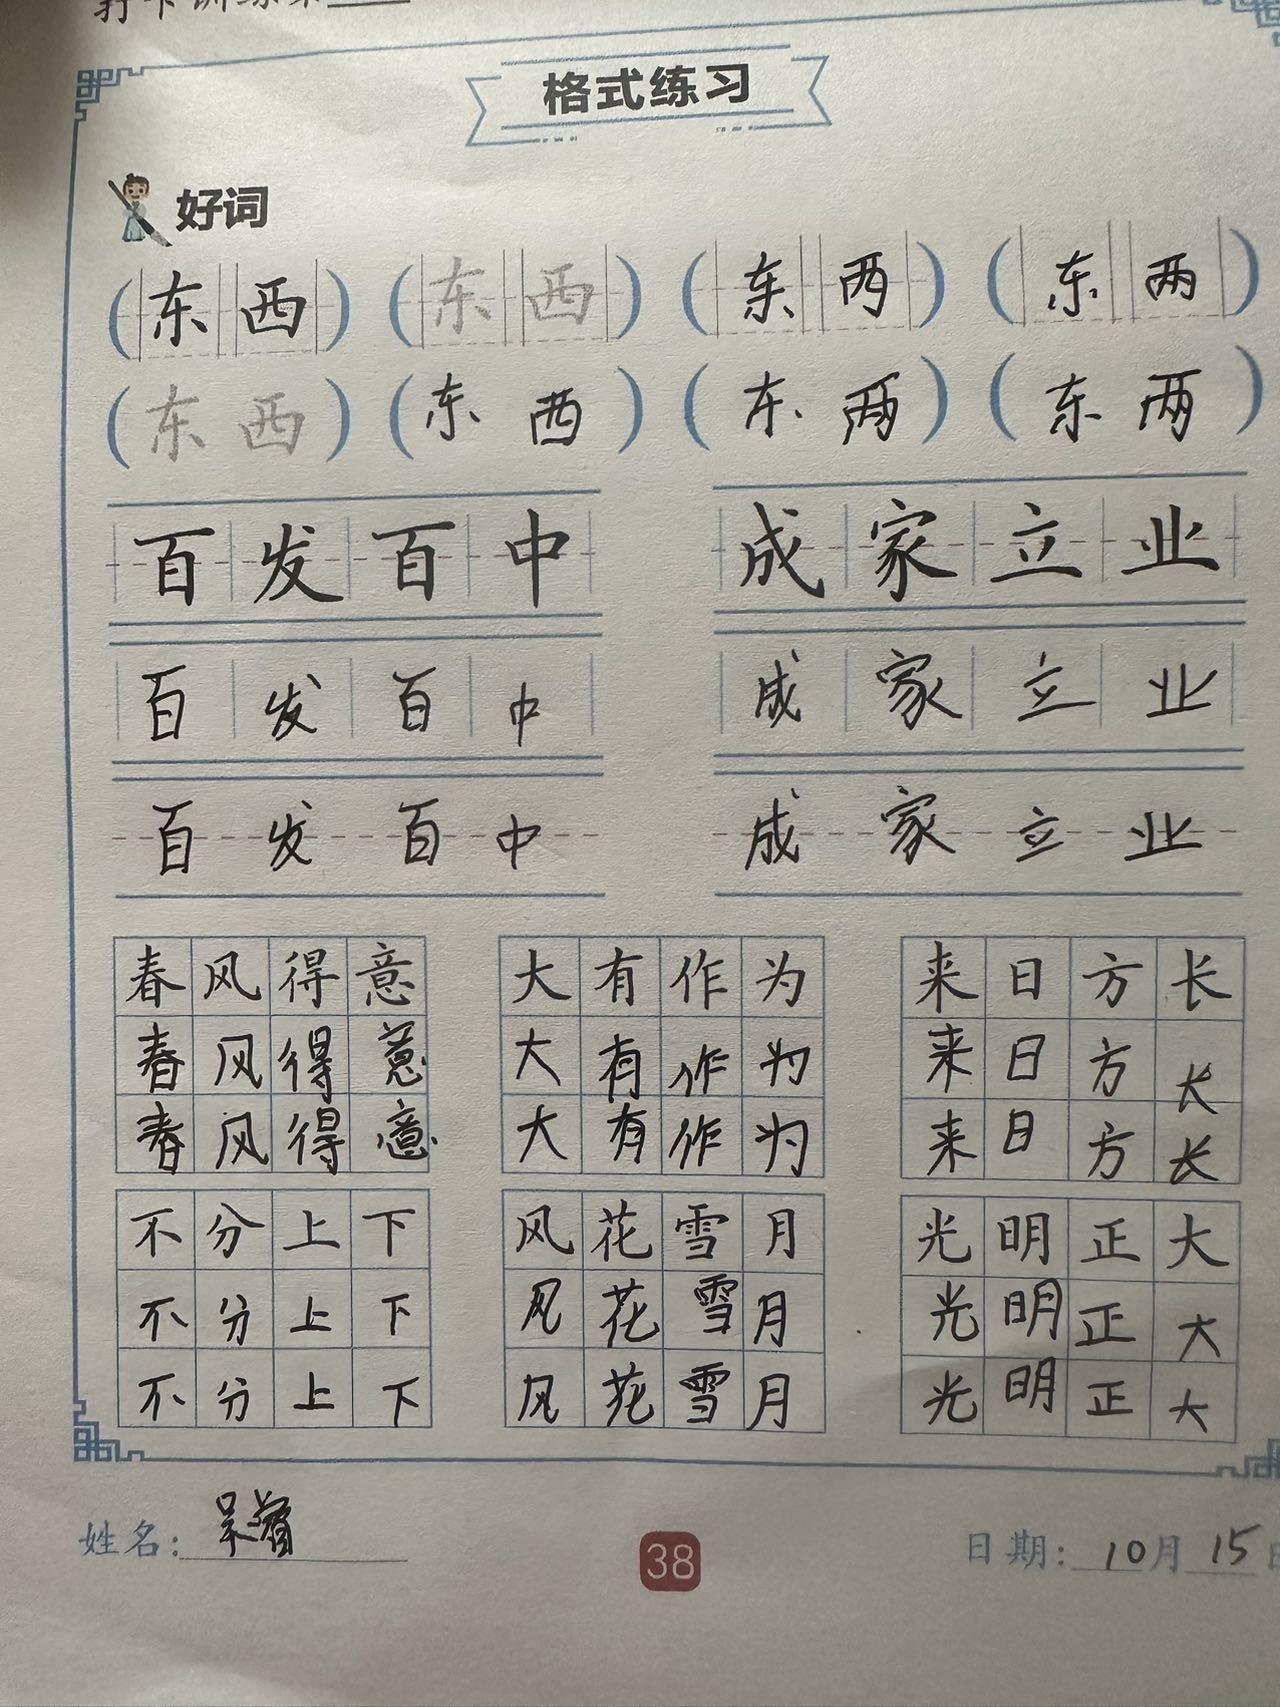 打卡训练第
格式练习
好词
(东西) (东西) (东西) (东两)
(东西) (东西) (东两) (东两)
百发百中 成家立业
百发百中 成家立业
百发百中 成家立业
春风得意 大有作为 来日方长
春风得意 大有作为 来日方长
春风得意 大有作为 来日方长
不分上下 风花雪月 光明正大
不分上下 风花雪月 光明正大
不分上下 风花雪月 光明正大
姓名: 38 日期: 10月15日